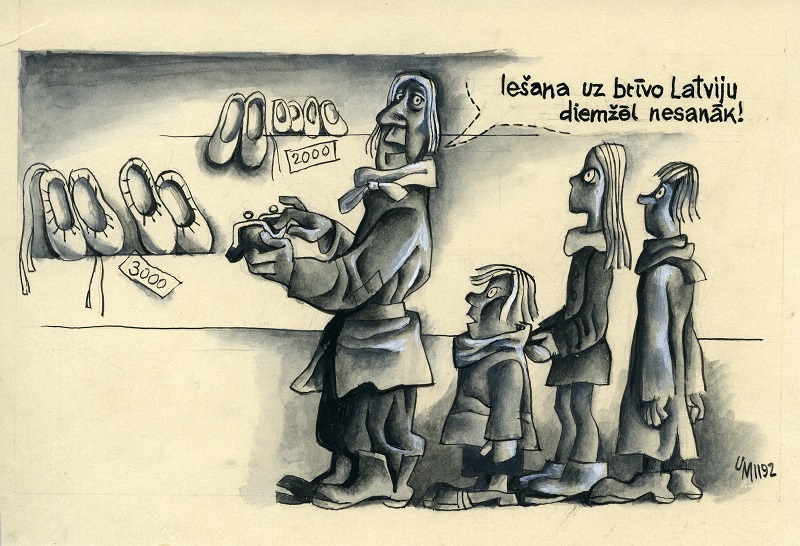 Iešana uz brīvo Latviju
diemžēl nesanāk!
2000
3000
UM 1192